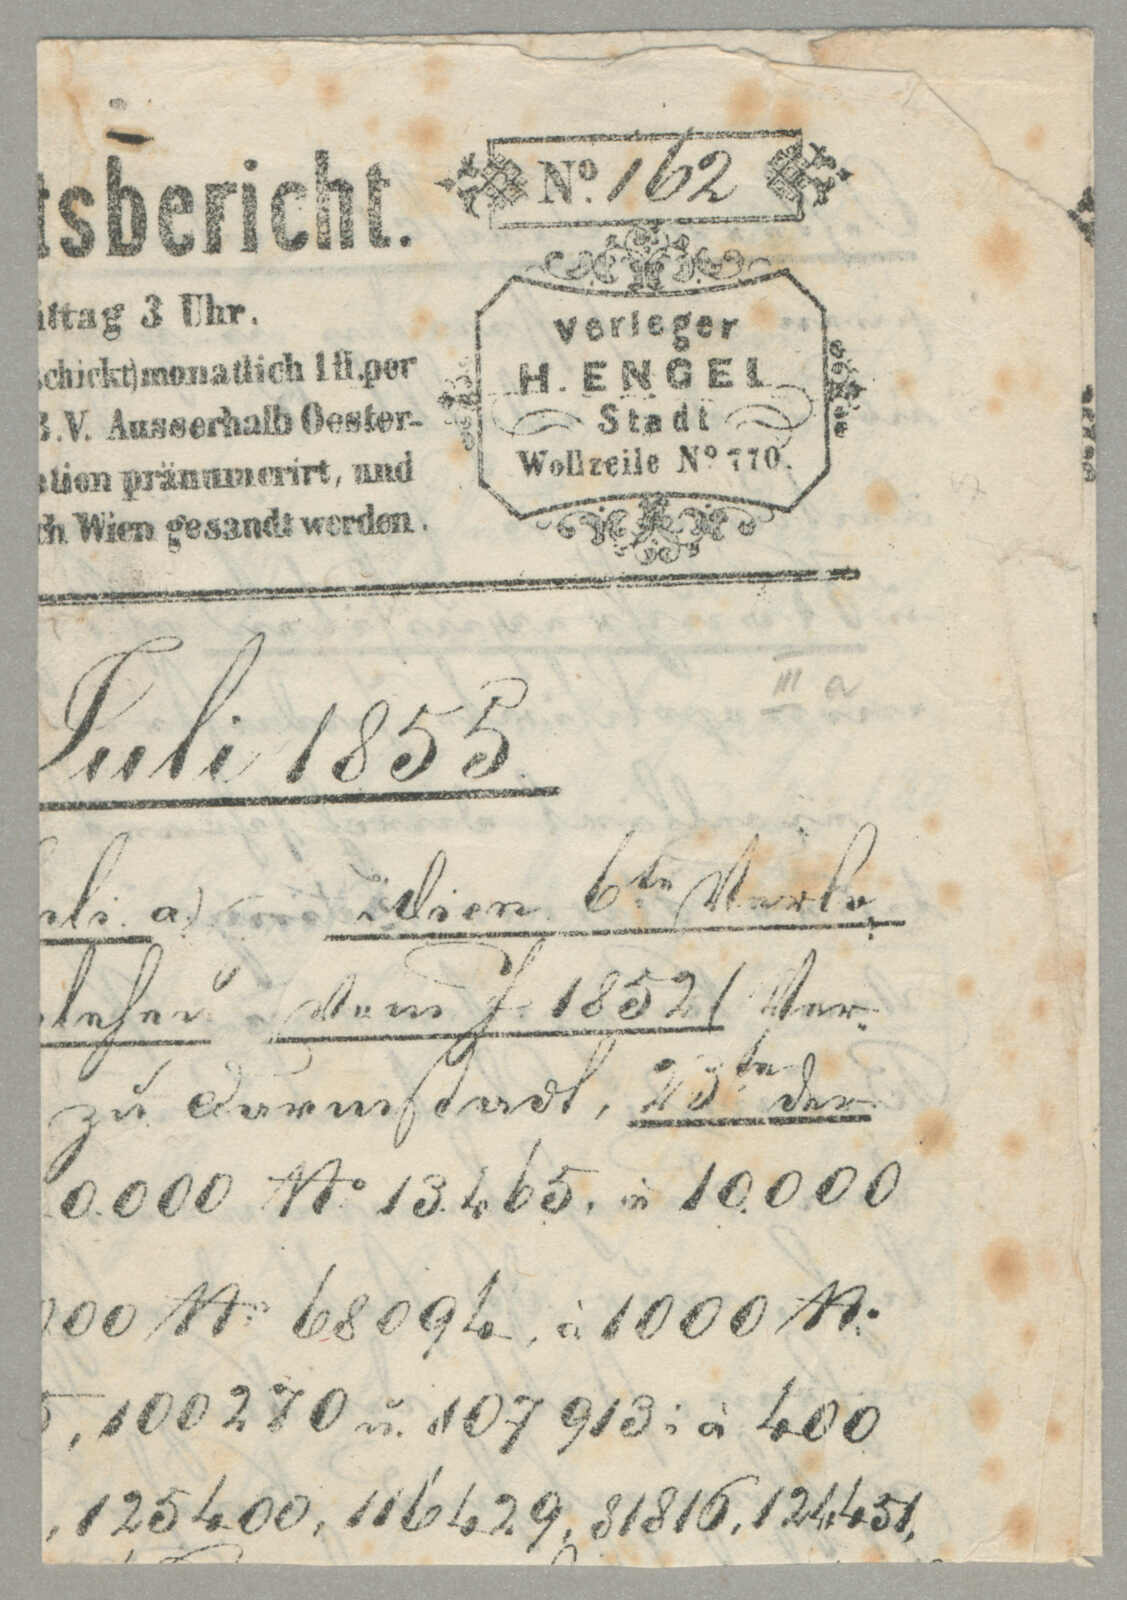 tsbericht.
No. 162
ittag 3 Uhr.
schickt) monatlich 1 fl. per
B.V. Ausserhalb Oester-
ation pränumerirt, und
ch Wien gesandt werden.
Verleger
H. ENGEL
Stadt
Wollzeile No 770.
III a
Juli 1855.
uli a) Wien 6te Verlo
lehen (vom J. 1852) Ver-
zu Darmstadt, 23te der
0.000 No 13.465, à 10.000
000 No 68094, à 1000 No
5, 100270 u. 107913; à 400
, 125400, 116429, 81816, 124451,